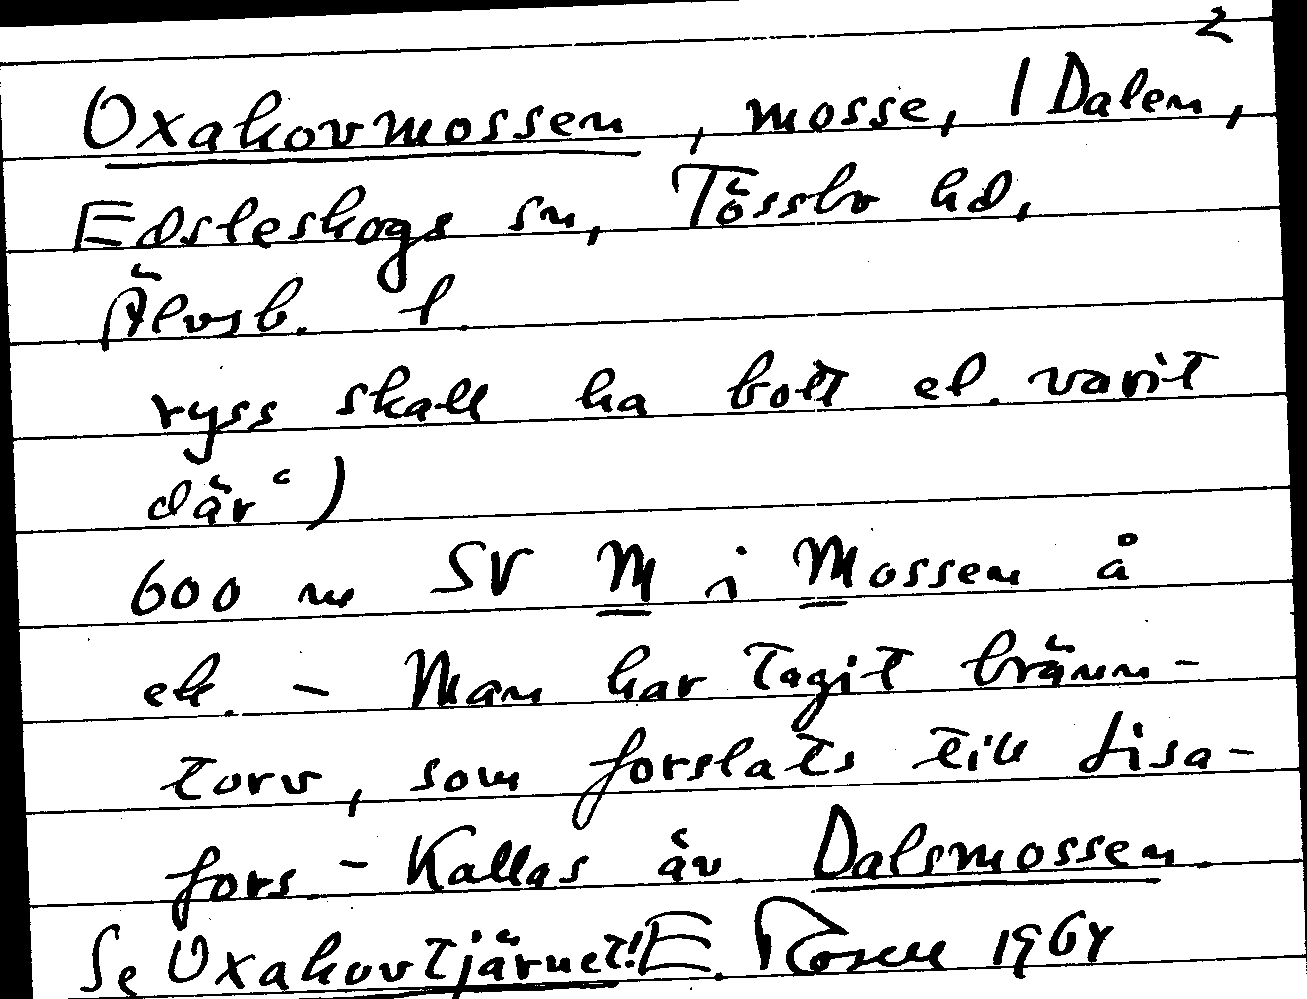 2
Oxahovmossen, mosse, 1 Dalen,
Edsleskogs sn, Tössbo hd,
Älvsb. l.
ryss skall ha bott el. varit
där")
600 m SV M i Mossen å
ek. - Man har tagit bränn-
torv, som forslats till Lisa-
fors - Kallas äv. Dalsmossen.
Se Oxahovtjärnet! E. Rosell 1964